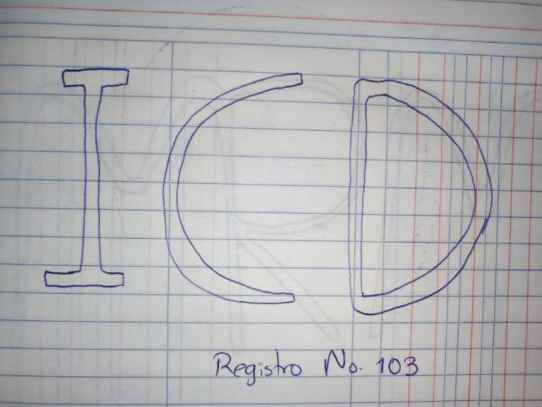 ICD
Registro No. 103